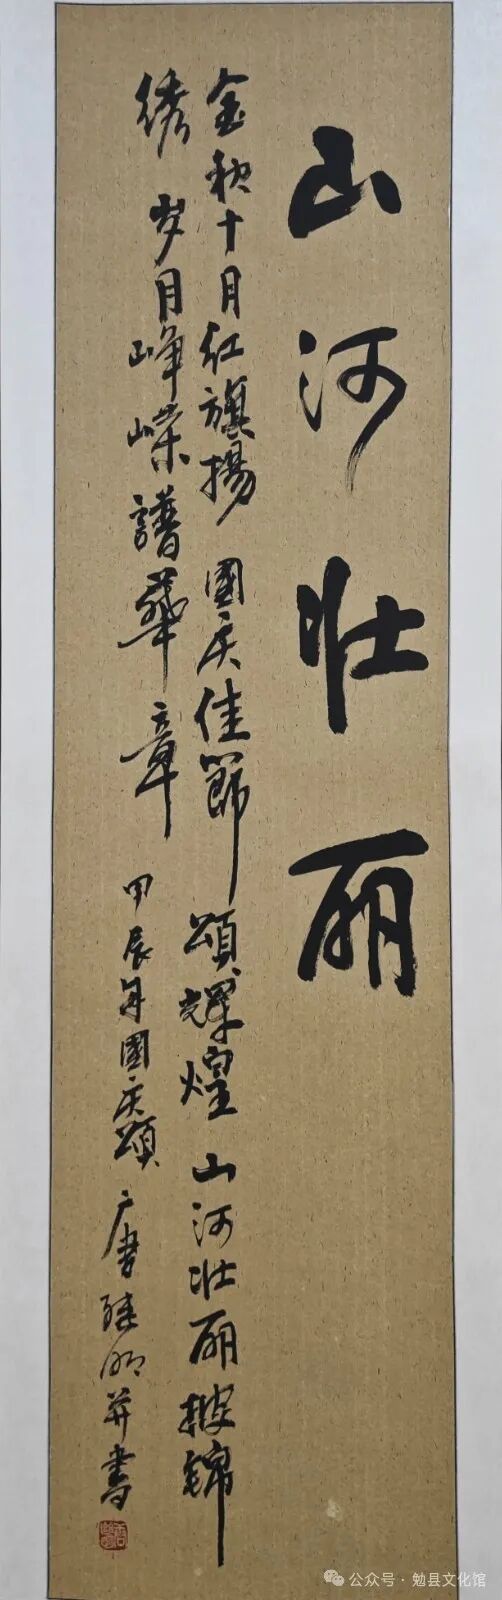 山河壮丽
金秋十月红旗揚 國庆佳節頌輝煌 山河壮丽披锦
绣 岁月峥嵘譜華章 甲辰年國庆頌 唐書 明并書
公众号·勉县文化馆